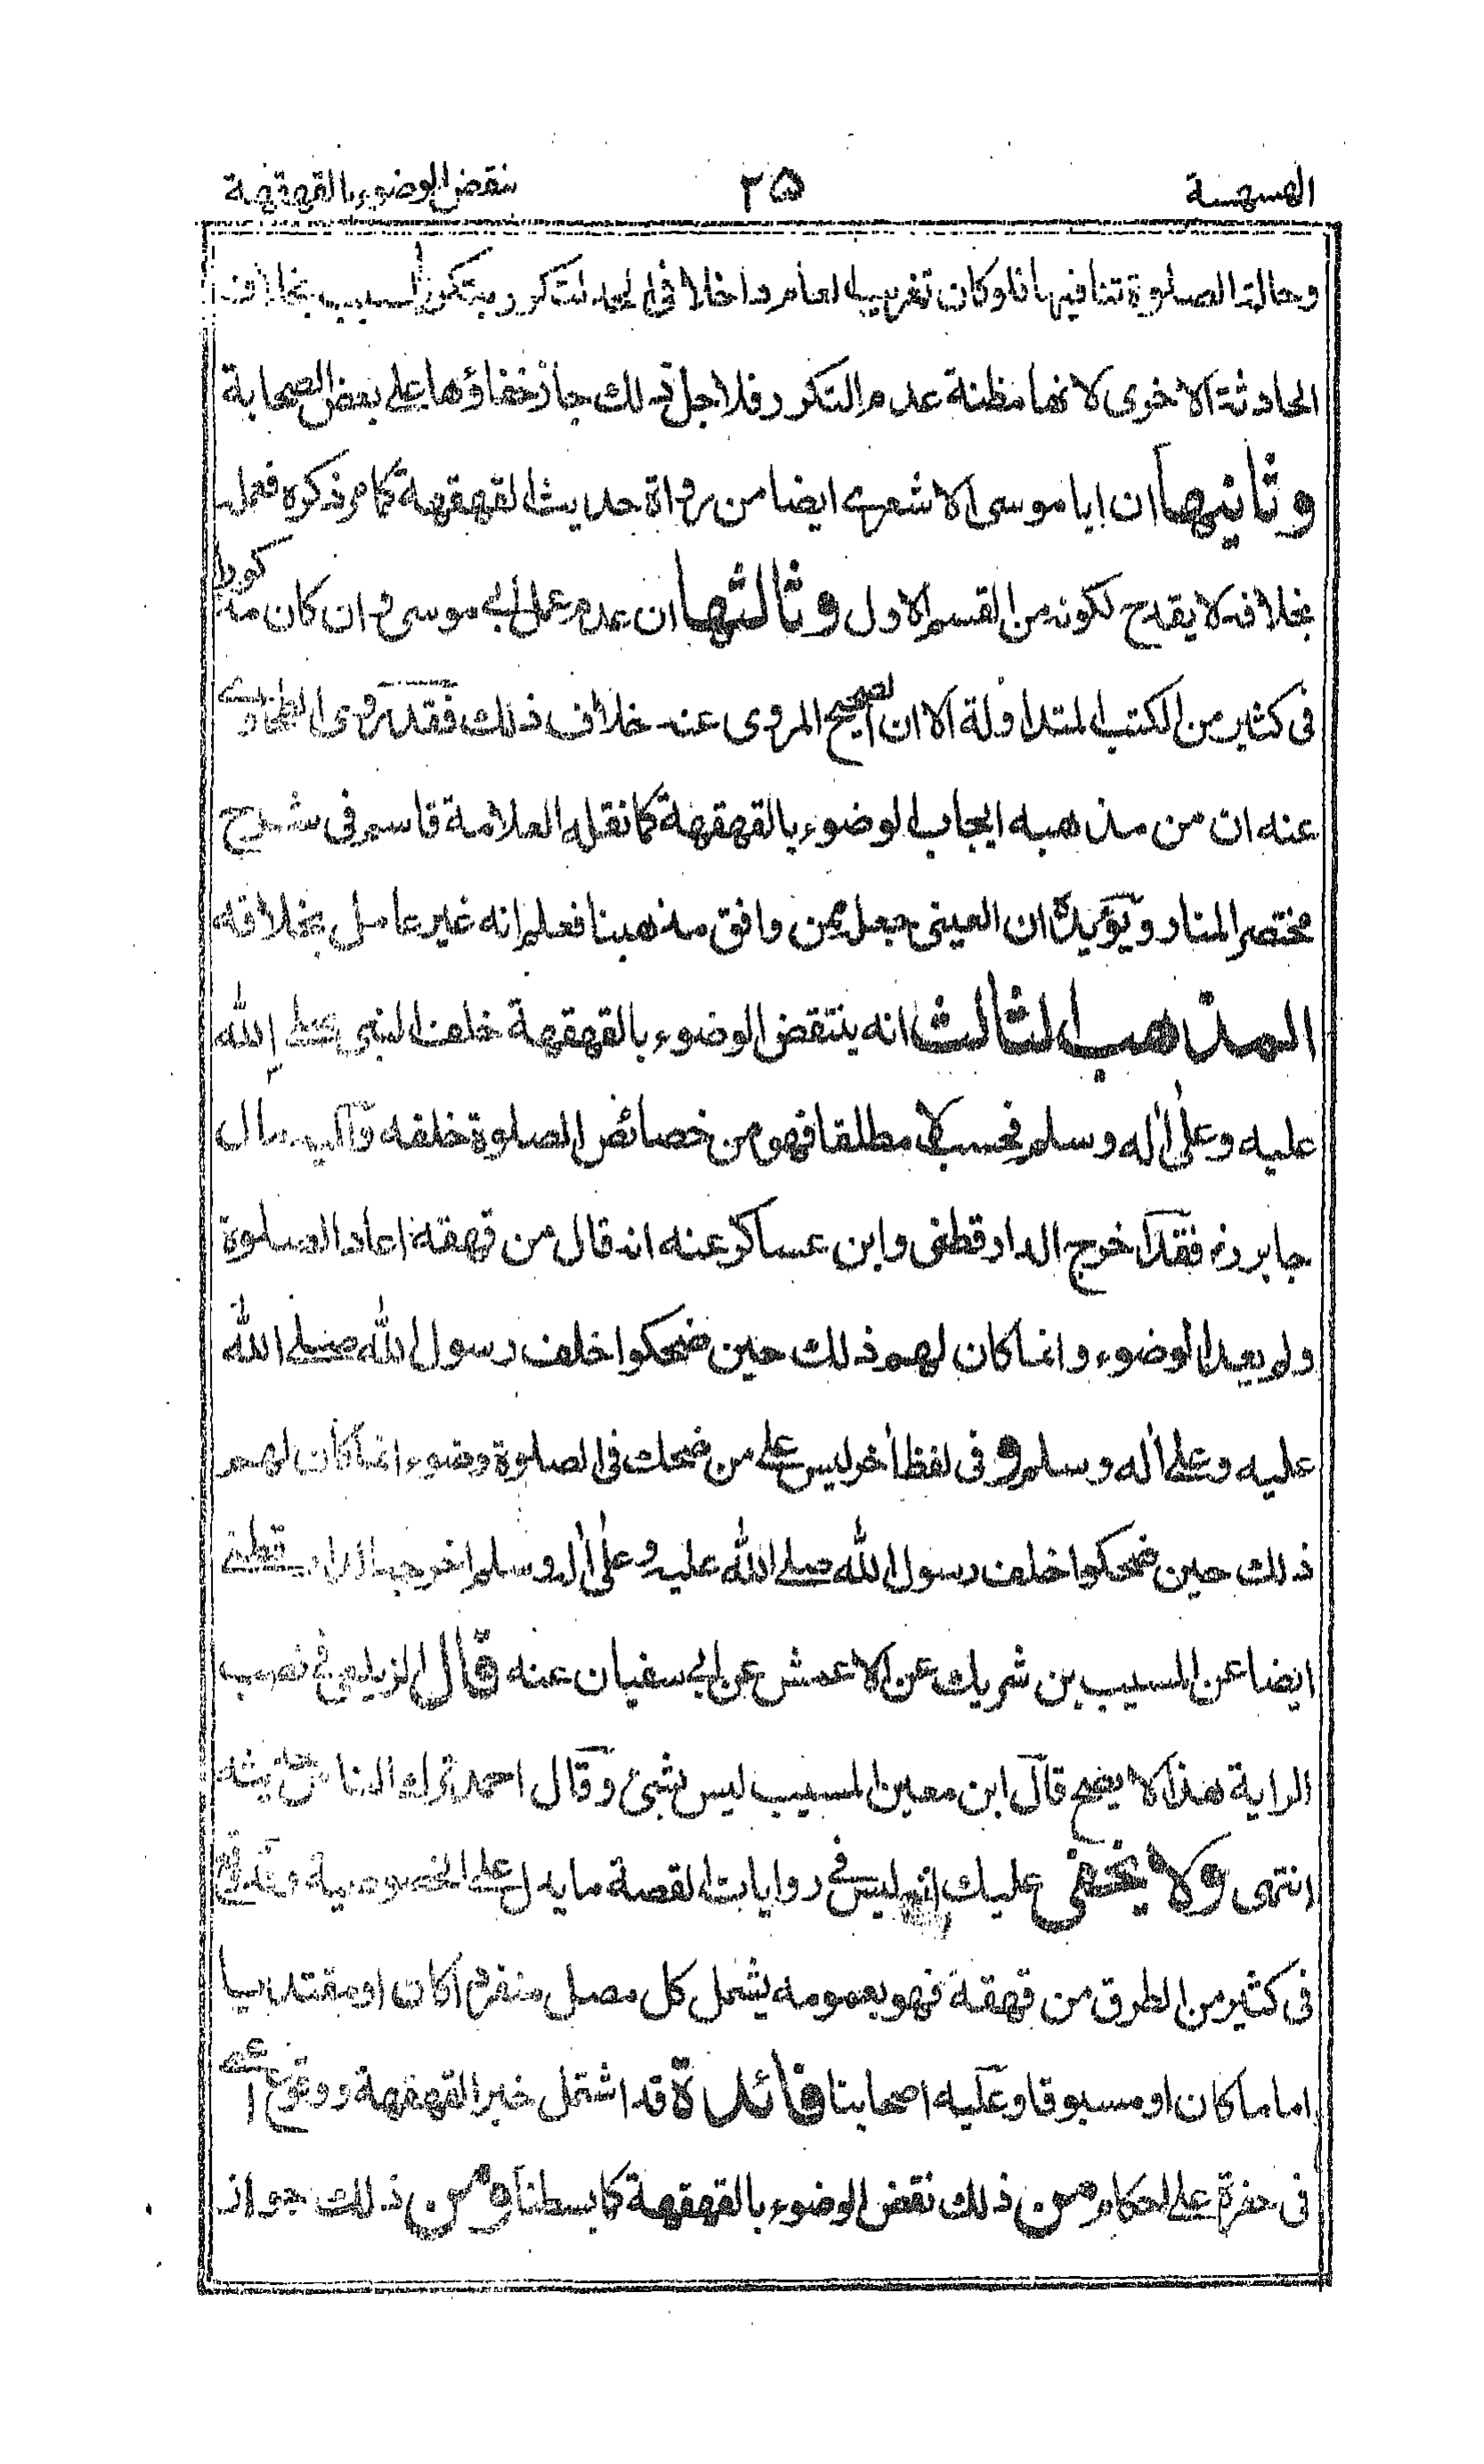 الهسهسة ٢٥ بنقض الوضوء بالقهقهة
وحالة الصلوة تنافيها فلو كان تغريب العام داخلا في الحد لتكرر بتكرر السبب بخلاف
الحادثة الاخرى لانها مظنة عدم التكرر فلاجل ذلك جاز خفاؤها على بعض الصحابة
وثانيها ان ابا موسى الاشعرى ايضا من رواة حديث القهقهة كما مر ذكره فعمله
بخلافه لا يقدح لكونه من القسم الاول وثالثها ان عدم عمل ابي موسى وان كان مذكورا
فى كثير من الكتب المتداولة الا ان الصحيح المروى عنه خلاف ذلك فقد روى الطحاوى
عنه ان من مذهبه ايجاب الوضوء بالقهقهة كما نقله العلامة قاسم فى شرح
مختصر المنار ويؤيده ان العينى جعله ممن وافق مذهبنا فعلم انه غير عامل بخلافه
المذهب الثالث انه ينتقض الوضوء بالقهقهة خلف النبى صلى الله
عليه وعلى اله وسلم فحسب لا مطلقا فهو من خصائص الصلوة خلفه واليه مال
جابر رض فقد اخرج الدارقطنى وابن عساكر عنه انه قال من قهقه اعاد الصلوة
ولم يعد الوضوء وانما كان لهم ذلك حين ضحكوا خلف رسول الله صلى الله
عليه وعلى اله وسلم وفى لفظ اخر ليس على من ضحك فى الصلوة وضوء انما كان لهم
ذلك حين ضحكوا خلف رسول الله صلى الله عليه وعلى اله وسلم اخرجه الدارقطنى
ايضا عن المسيب بن شريك عن الاعمش عن ابى سفيان عنه قال الزيلعى فى نصب
الراية هذا لا يصح قال ابن معين المسيب ليس بشئ وقال احمد ترك الناس حديثه
انتهى ولا يخفى عليك انه ليس فى روايات القصة ما يدل على الخصوصية وقد وقع
فى كثير من الطرق من قهقه فهو بعمومه يشمل كل مصل منفردا كان او مقتديا
اماما كان او مسبوقا وعليه اصحابنا فائدة قد اشتمل خبر القهقهة ووقوع اعمى
فى حفرة على احكام من ذلك نقض الوضوء بالقهقهة كما بسطنا ومن ذلك جواز